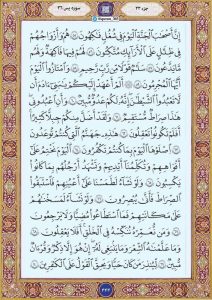 جزء ۲۳
سورة يس ۳۶
إِنَّ أَصْحَٰبَ ٱلْجَنَّةِ ٱلْيَوْمَ فِى شُغُلٍ فَٰكِهُونَ ۝ هُمْ وَأَزْوَٰجُهُمْ
فِى ظِلَٰلٍ عَلَى ٱلْأَرَآئِكِ مُتَّكِـُٔونَ ۝ لَهُمْ فِيهَا فَٰكِهَةٌ وَلَهُم
مَّا يَدَّعُونَ ۝ سَلَٰمٌ قَوْلًا مِّن رَّبٍّ رَّحِيمٍ ۝ وَٱمْتَٰزُوا۟ ٱلْيَوْمَ
أَيُّهَا ٱلْمُجْرِمُونَ ۝ أَلَمْ أَعْهَدْ إِلَيْكُمْ يَٰبَنِىٓ ءَادَمَ أَن
لَّا تَعْبُدُوا۟ ٱلشَّيْطَٰنَ إِنَّهُۥ لَكُمْ عَدُوٌّ مُّبِينٌ ۝ وَأَنِ ٱعْبُدُونِى
هَٰذَا صِرَٰطٌ مُّسْتَقِيمٌ ۝ وَلَقَدْ أَضَلَّ مِنكُمْ جِبِلًّا كَثِيرًا
أَفَلَمْ تَكُونُوا۟ تَعْقِلُونَ ۝ هَٰذِهِۦ جَهَنَّمُ ٱلَّتِى كُنتُمْ تُوعَدُونَ
۝ ٱصْلَوْهَا ٱلْيَوْمَ بِمَا كُنتُمْ تَكْفُرُونَ ۝ ٱلْيَوْمَ نَخْتِمُ عَلَىٰٓ
أَفْوَٰهِهِمْ وَتُكَلِّمُنَآ أَيْدِيهِمْ وَتَشْهَدُ أَرْجُلُهُم بِمَا كَانُوا۟
يَكْسِبُونَ ۝ وَلَوْ نَشَآءُ لَطَمَسْنَا عَلَىٰٓ أَعْيُنِهِمْ فَٱسْتَبَقُوا۟
ٱلصِّرَٰطَ فَأَنَّىٰ يُبْصِرُونَ ۝ وَلَوْ نَشَآءُ لَمَسَخْنَٰهُمْ
عَلَىٰ مَكَانَتِهِمْ فَمَا ٱسْتَطَٰعُوا۟ مُضِيًّا وَلَا يَرْجِعُونَ
۝ وَمَن نُّعَمِّرْهُ نُنَكِّسْهُ فِى ٱلْخَلْقِ أَفَلَا يَعْقِلُونَ ۝
وَمَا عَلَّمْنَٰهُ ٱلشِّعْرَ وَمَا يَنۢبَغِى لَهُۥٓ إِنْ هُوَ إِلَّا ذِكْرٌ وَقُرْءَانٌ
مُّبِينٌ ۝ لِّيُنذِرَ مَن كَانَ حَيًّا وَيَحِقَّ ٱلْقَوْلُ عَلَى ٱلْكَٰفِرِينَ ۝
۴۴۴